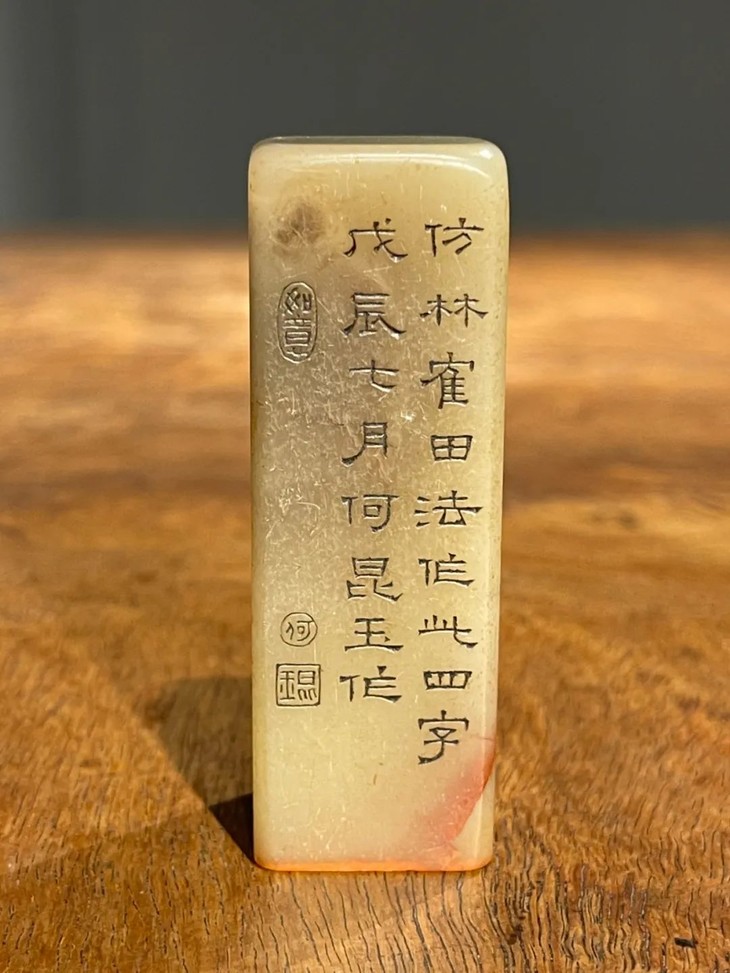 仿林寉田法作此四字
戊辰七月何昆玉作
如意
何
昆玉